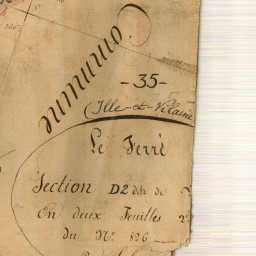 Commune
-35-
(Ille-et-Vilaine
Le Ferré
Section D2 dite de
En deux Feuilles 2
du Nº 826